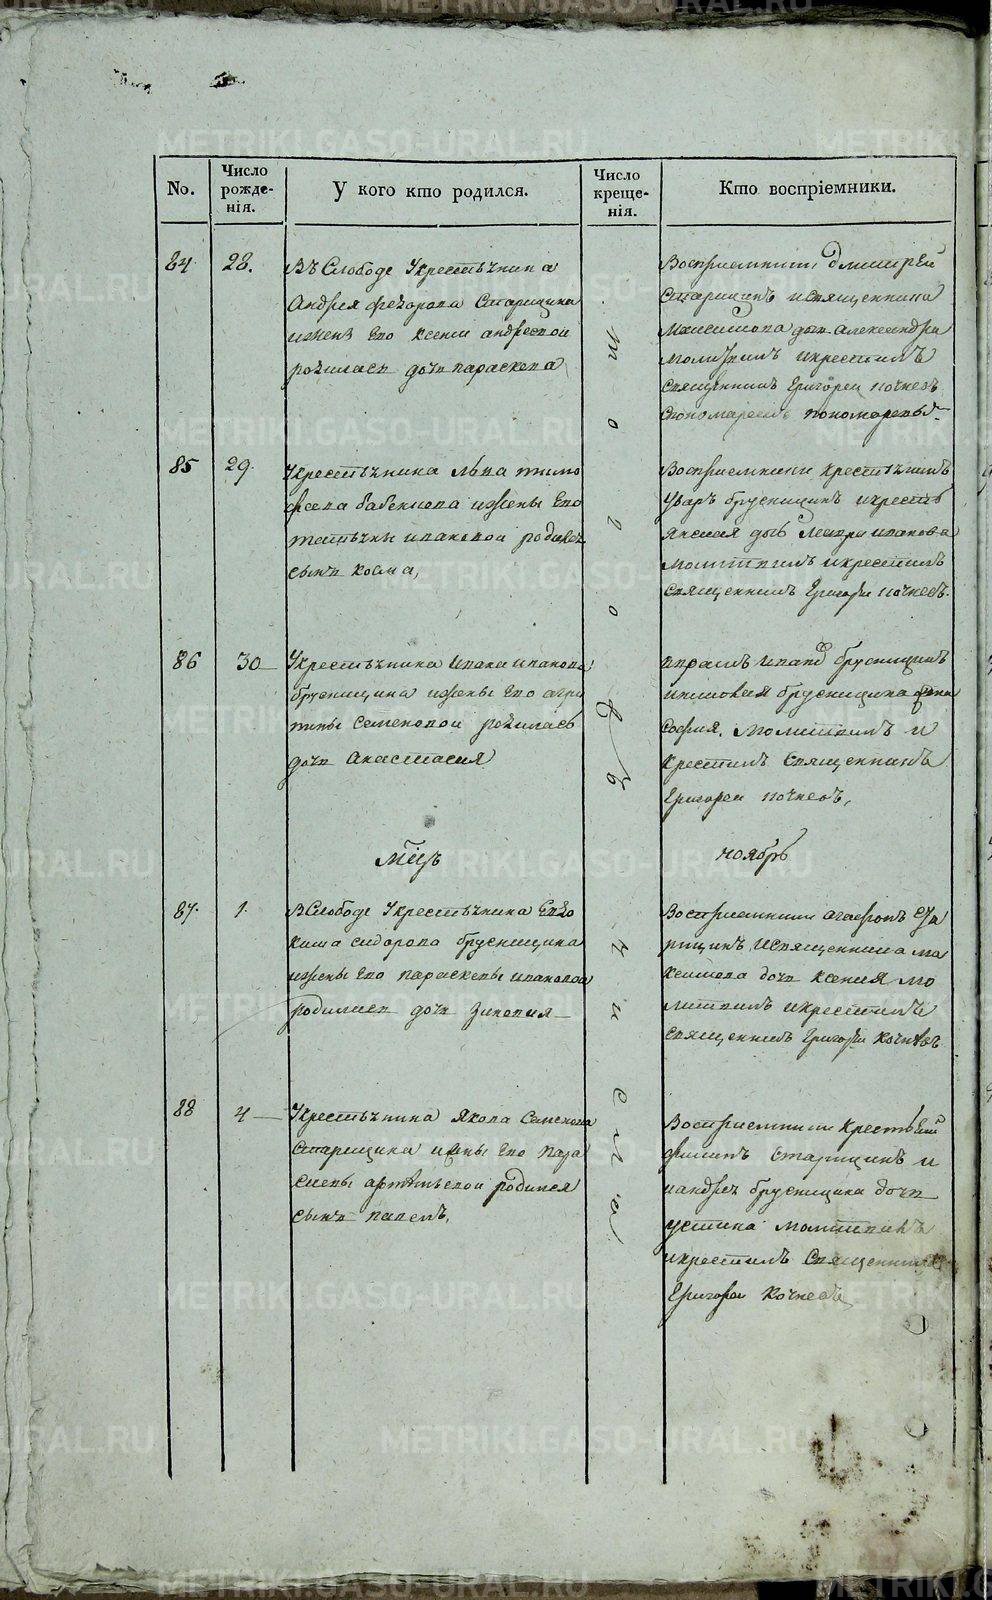 No.
Число рожде-нія.
У кого кто родился.
Число креще-нія.
Кто воспріемники.
84
28.
Въ Слободе Укрестьянина
Андрея Федорова Старицина
ижены его Ксении андреевой
родилась дочь параскева
Восприемники Дмитрей
Старицинъ исвященника
Максимова дочь Александра
молитвилъ икрестилъ
священникъ Григорей
того же числа
85
29.
Укрестьянина льва тимо
феева бабенкова ижены его
татьяны ивановой родился
сынъ косма,
Восприемники крестьянинъ
Уваръ брусницинъ
дочь ивановa
молитвилъ икрестилъ
священникъ Григорей
86
30
Укрестьянина ивана иванова
брусницина ижены его агри
пины семеновой родилась
дочь анастасия
брусницинъ
брусницина дочь
софия. молитвилъ и
крестилъ священникъ
Григорей
мцъ
ноябрь
87.
1.
ВСлободе Укрестьянина Евдо
кима сидорова брусницина
ижены его параскевы ивановой
родилась дочь зиновия
Восприемники агафонъ Ста
рицинъ исвященника ма
ксимова дочь ксения мо
литвилъ икрестилъ
священникъ Григорей
88
4
Укрестьянина Якова Семенова
Старицина ижены его пара
скевы артемьевой родился
сынъ павелъ,
Восприемники
филипъ старицинъ и
андрея брусницина дочь
устина молитвилъ
икрестилъ Священникъ
Григорей